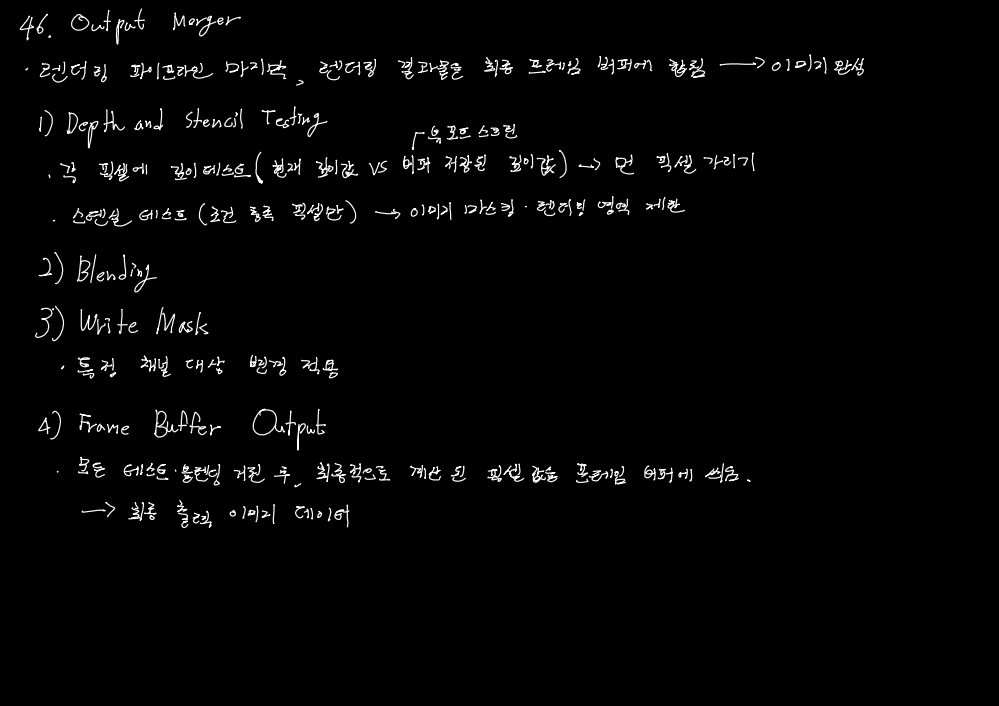 46. Output Merger
· 렌더링 파이프라인 마지막, 렌더링 결과물을 최종 프레임 버퍼에 합침 → 이미지 완성
1) Depth and Stencil Testing
뷰포트 스크린
· 각 픽셀에 깊이 테스트 (현재 깊이값 VS 버퍼 저장된 깊이값) → 먼 픽셀 가리기
· 스텐실 테스트 (조건 충족 픽셀만) → 이미지 마스킹 · 렌더링 영역 제한
2) Blending
3) Write Mask
· 특정 채널 대상 변경 적용
4) Frame Buffer Output
· 모든 테스트·블렌딩 거친 후, 최종적으로 계산 된 픽셀 값을 프레임 버퍼에 씌움.
→ 최종 출력 이미지 데이터